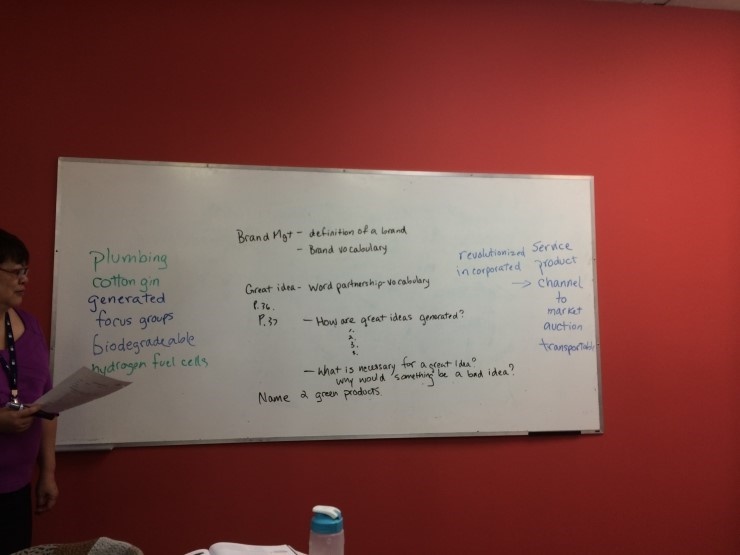 plumbing
cotton gin
generated
focus groups
biodegradeable
hydrogen fuel cells
Brand Mgt - definition of a brand
- Brand vocabulary
Great idea - word partnership - vocabulary
P. 76
P. 37
- How are great ideas generated?
1.
2.
3.
4.
- What is necessary for a great idea?
why would something be a bad idea?
Name 2 green products.
revolutionized
incorporated
Service
product
→ channel
to
market
auction
transportable